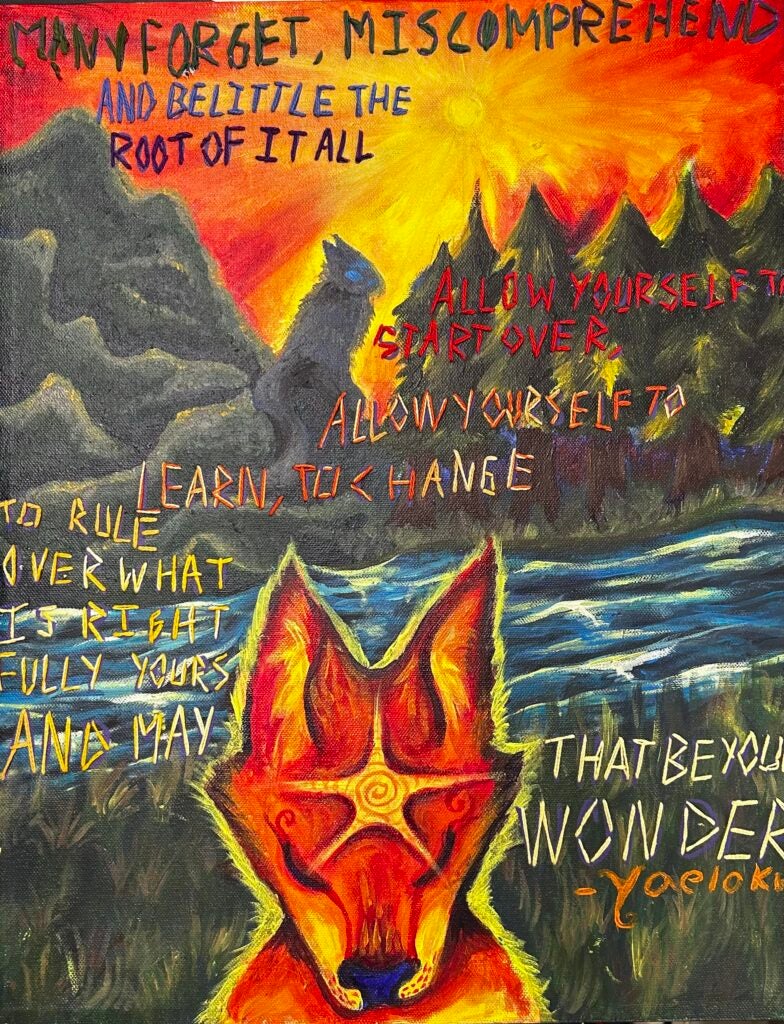 MANY FORGET, MISCOMPREHEND
AND BELITTLE THE
ROOT OF IT ALL
ALLOW YOURSELF TO
START OVER,
ALLOW YOURSELF TO
LEARN, TO CHANGE
TO RULE
OVER WHAT
IS RIGHT
FULLY YOURS
AND MAY
THAT BE YOUR
WONDER